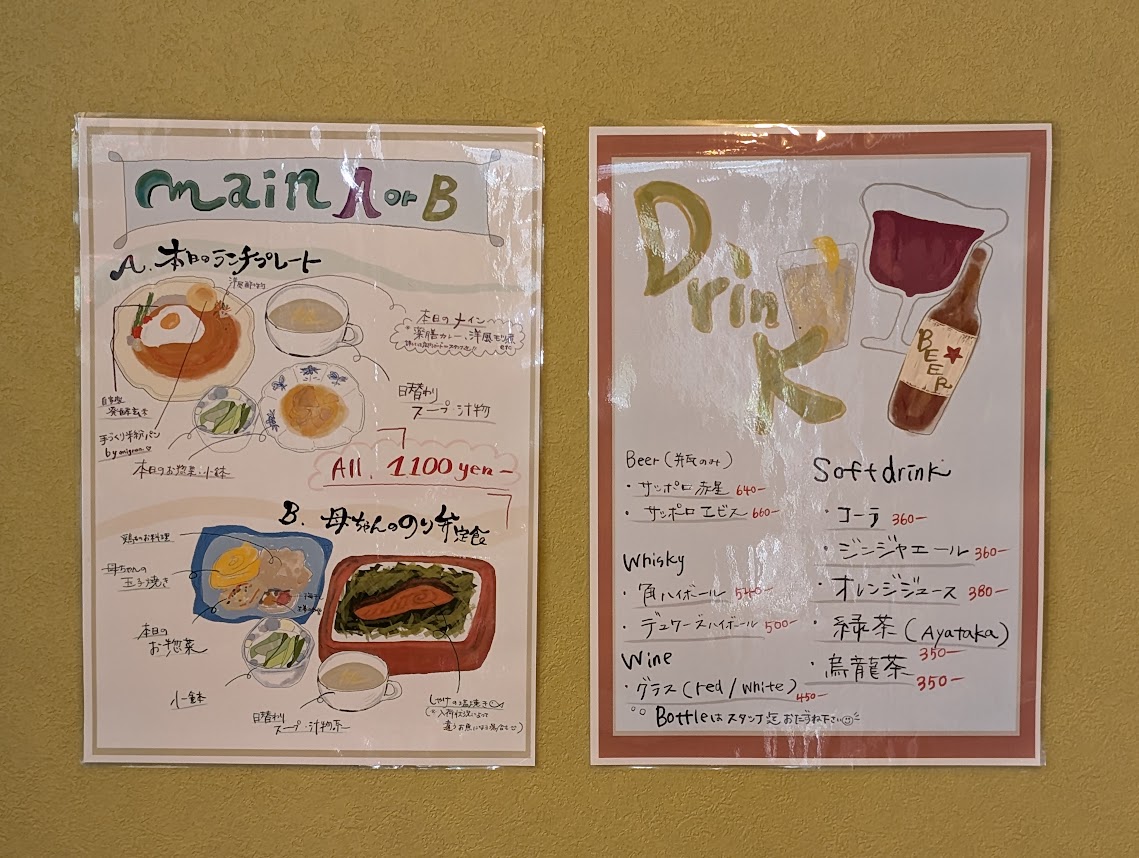 main A or B
A. 本日のランチプレート
本日のメイン
薬膳カレー、洋風
etc
日替わり
スープ・汁物
自家製
手づくり米粉パン
by
本日のお惣菜・小鉢
All. 1.100 yen-
B. 母ちゃんののり弁定食
お料理
母ちゃんの
玉子焼き
本日の
お惣菜
小鉢
日替わり
スープ・汁物
しゃけの塩焼き
(※入荷状況によって
違うお魚になる場合も)
Drink
BEER
Beer (瓶のみ)
・サッポロ赤星 640-
・サッポロエビス 660-
Whisky
・角ハイボール
・デュワーズハイボール 500-
Wine
・グラス (red / white) 450-
Bottleはスタッフ迄おたずね下さい
Soft drink
・コーラ 360-
・ジンジャエール 360-
・オレンジジュース 380-
・緑茶 (Ayataka) 350-
・烏龍茶 350-